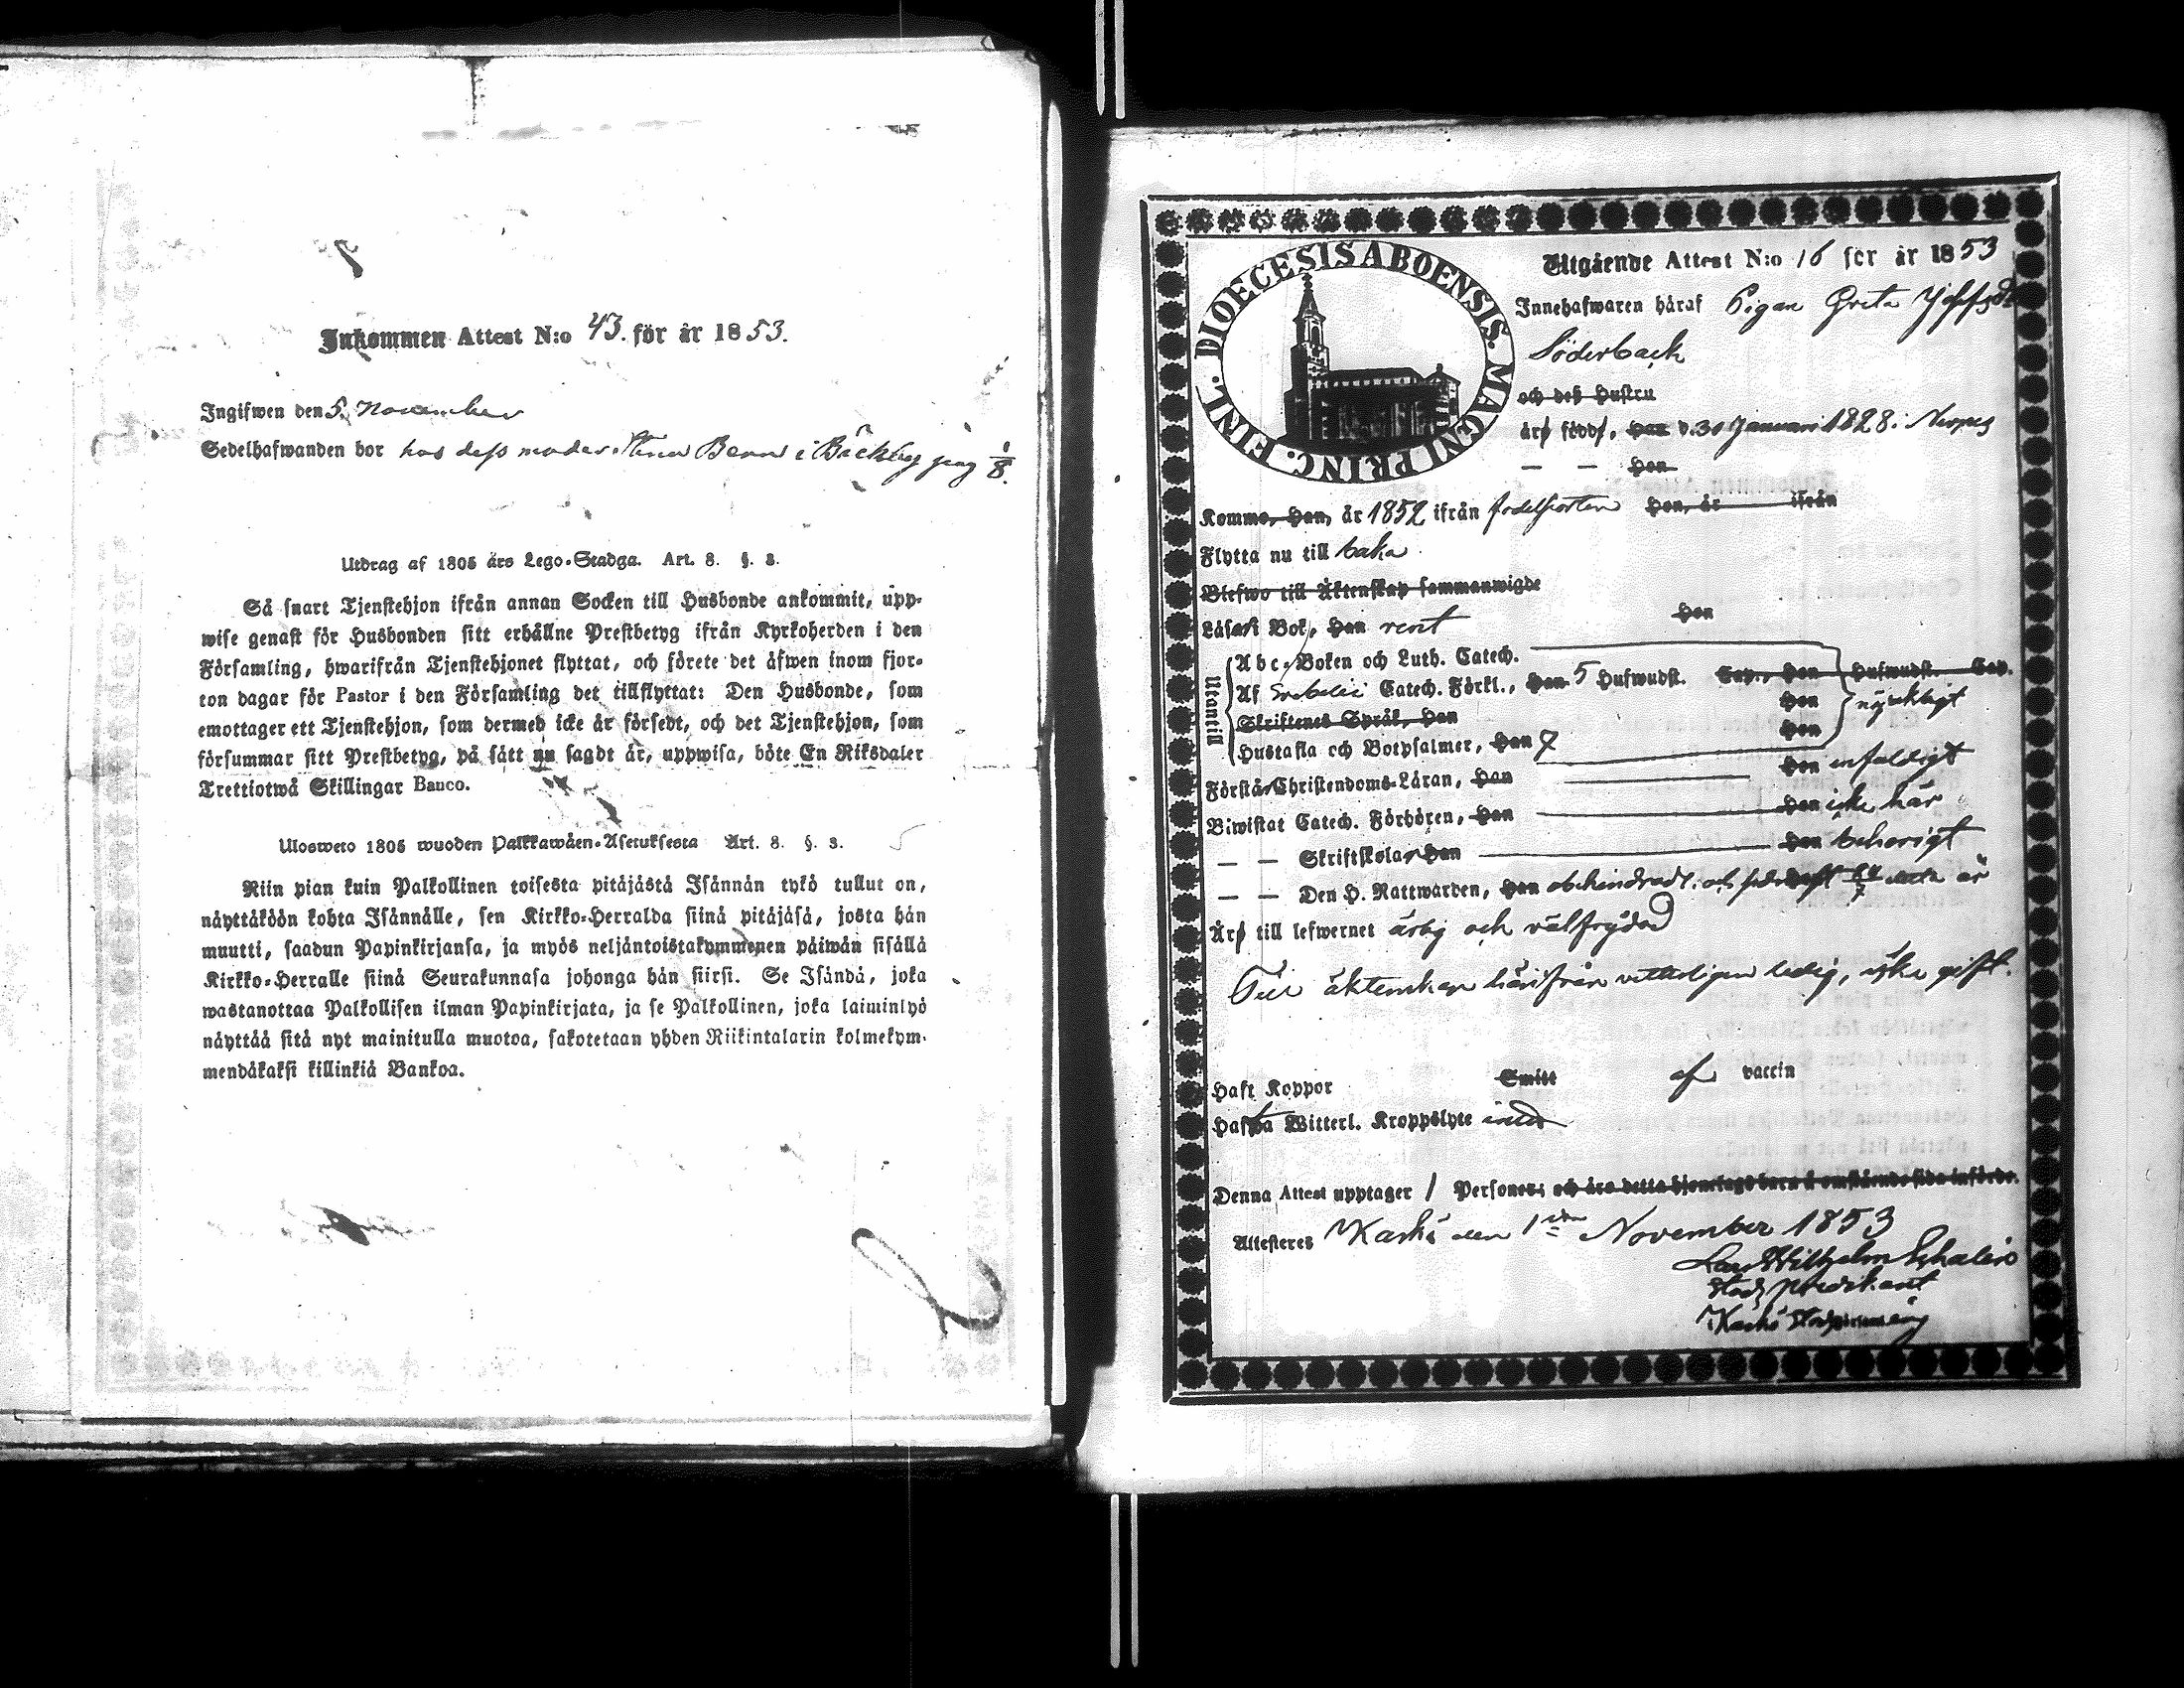 Inkommen Attest N:o 43. för år 1853.
Ingifwen den 5. November
Sedelhafwanden bor hos dess moder Stina Benn i Bäckby pag 1/8.
Utdrag af 1805 års Lego-Stadga. Art. 8. §. 3.
Så snart Tjenstehjon ifrån annan Socken till Husbonde ankommit, upp-
wise genast för Husbonden sitt erhållne Prestbetyg ifrån Kyrkoherden i den
Församling, hwarifrån Tjenstehjonet flyttat, och förete det äfwen inom fjor-
ton dagar för Pastor i den Församling det tillflyttat: Den Husbonde, som
emottager ett Tjenstehjon, som dermed icke är försedt, och det Tjenstehjon, som
försummar sitt Prestbetyg, på sätt nu sagdt är, uppwisa, böte En Riksdaler
Trettiotwå Skillingar Banco.
Ulosweto 1805 wuoden Palkkawäen-Asetuksesta Art. 8. §. 3.
Niin pian kuin Palkollinen toisesta pitäjästä Isännän tykö tullut on,
näyttäköön kohta Isännälle, sen Kirkko-Herralda siinä pitäjäsä, josta hän
muutti, saadun Papinkirjansa, ja myös neljäntoistakymmenen päiwän sisällä
Kirkko-Herralle siinä Seurakunnasa johonga hän siirsi. Se Isändä, joka
wastanottaa Palkollisen ilman Papinkirjata, ja se Palkollinen, joka laiminlyö
näyttää sitä nyt mainitulla muotoa, sakotetaan yhden Riikintalarin kolmekym-
mendäkaksi killinkiä Bankoa.
DIOECESIS ABOENSIS. MAGNI PRINC. FINL.
Utgående Attest N:o 16 för år 1853
Innehafwaren häraf Pigan Greta Josefsdr
Söderback
och deß Hustru
äro född, han d. 30 Januari 1828 i Nerpes
— — Hon
Komma, Han, år 1852 ifrån födelseorten Hon, år ifrån
Flytta nu till baka
Blefwo till Äktenskap sammanwigde
Läsa i Bok, Han rent Hon
Utantill
Abc-Boken och Luth. Catech.
Af Svebelii Catech. Förkl., Han 5 Hufwudst. Cap., Hon Hufwudst. Cap.
Skriftenes Språk, Han Hon nöjaktigt
Hustafla och Botpsalmer, Han 7 Hon
Förstår Christendoms-Läran, Han Hon enfaldigt
Biwistat Catech. Förhören, Han Hon icke här
— — Skriftskolar Han Hon behörigt
— — Den H. Nattwarden, Han obehindradt och
Äro till lefwernet ärlig och välfrejdad
Till äktenskap härifrån vetterligen ledig, icke gift.
Haft Koppor Smitt af vaccin
Hafwa Witterl. Kroppslyte intet
Denna Attest upptager 1 Personer: och äro detta hjonelags barn å omstående sida införde.
Attesteres Kaskö den 1sta November 1853
Lars Wilhelm Schalin
Stads predikant
i Kaskö Stadsförsamling